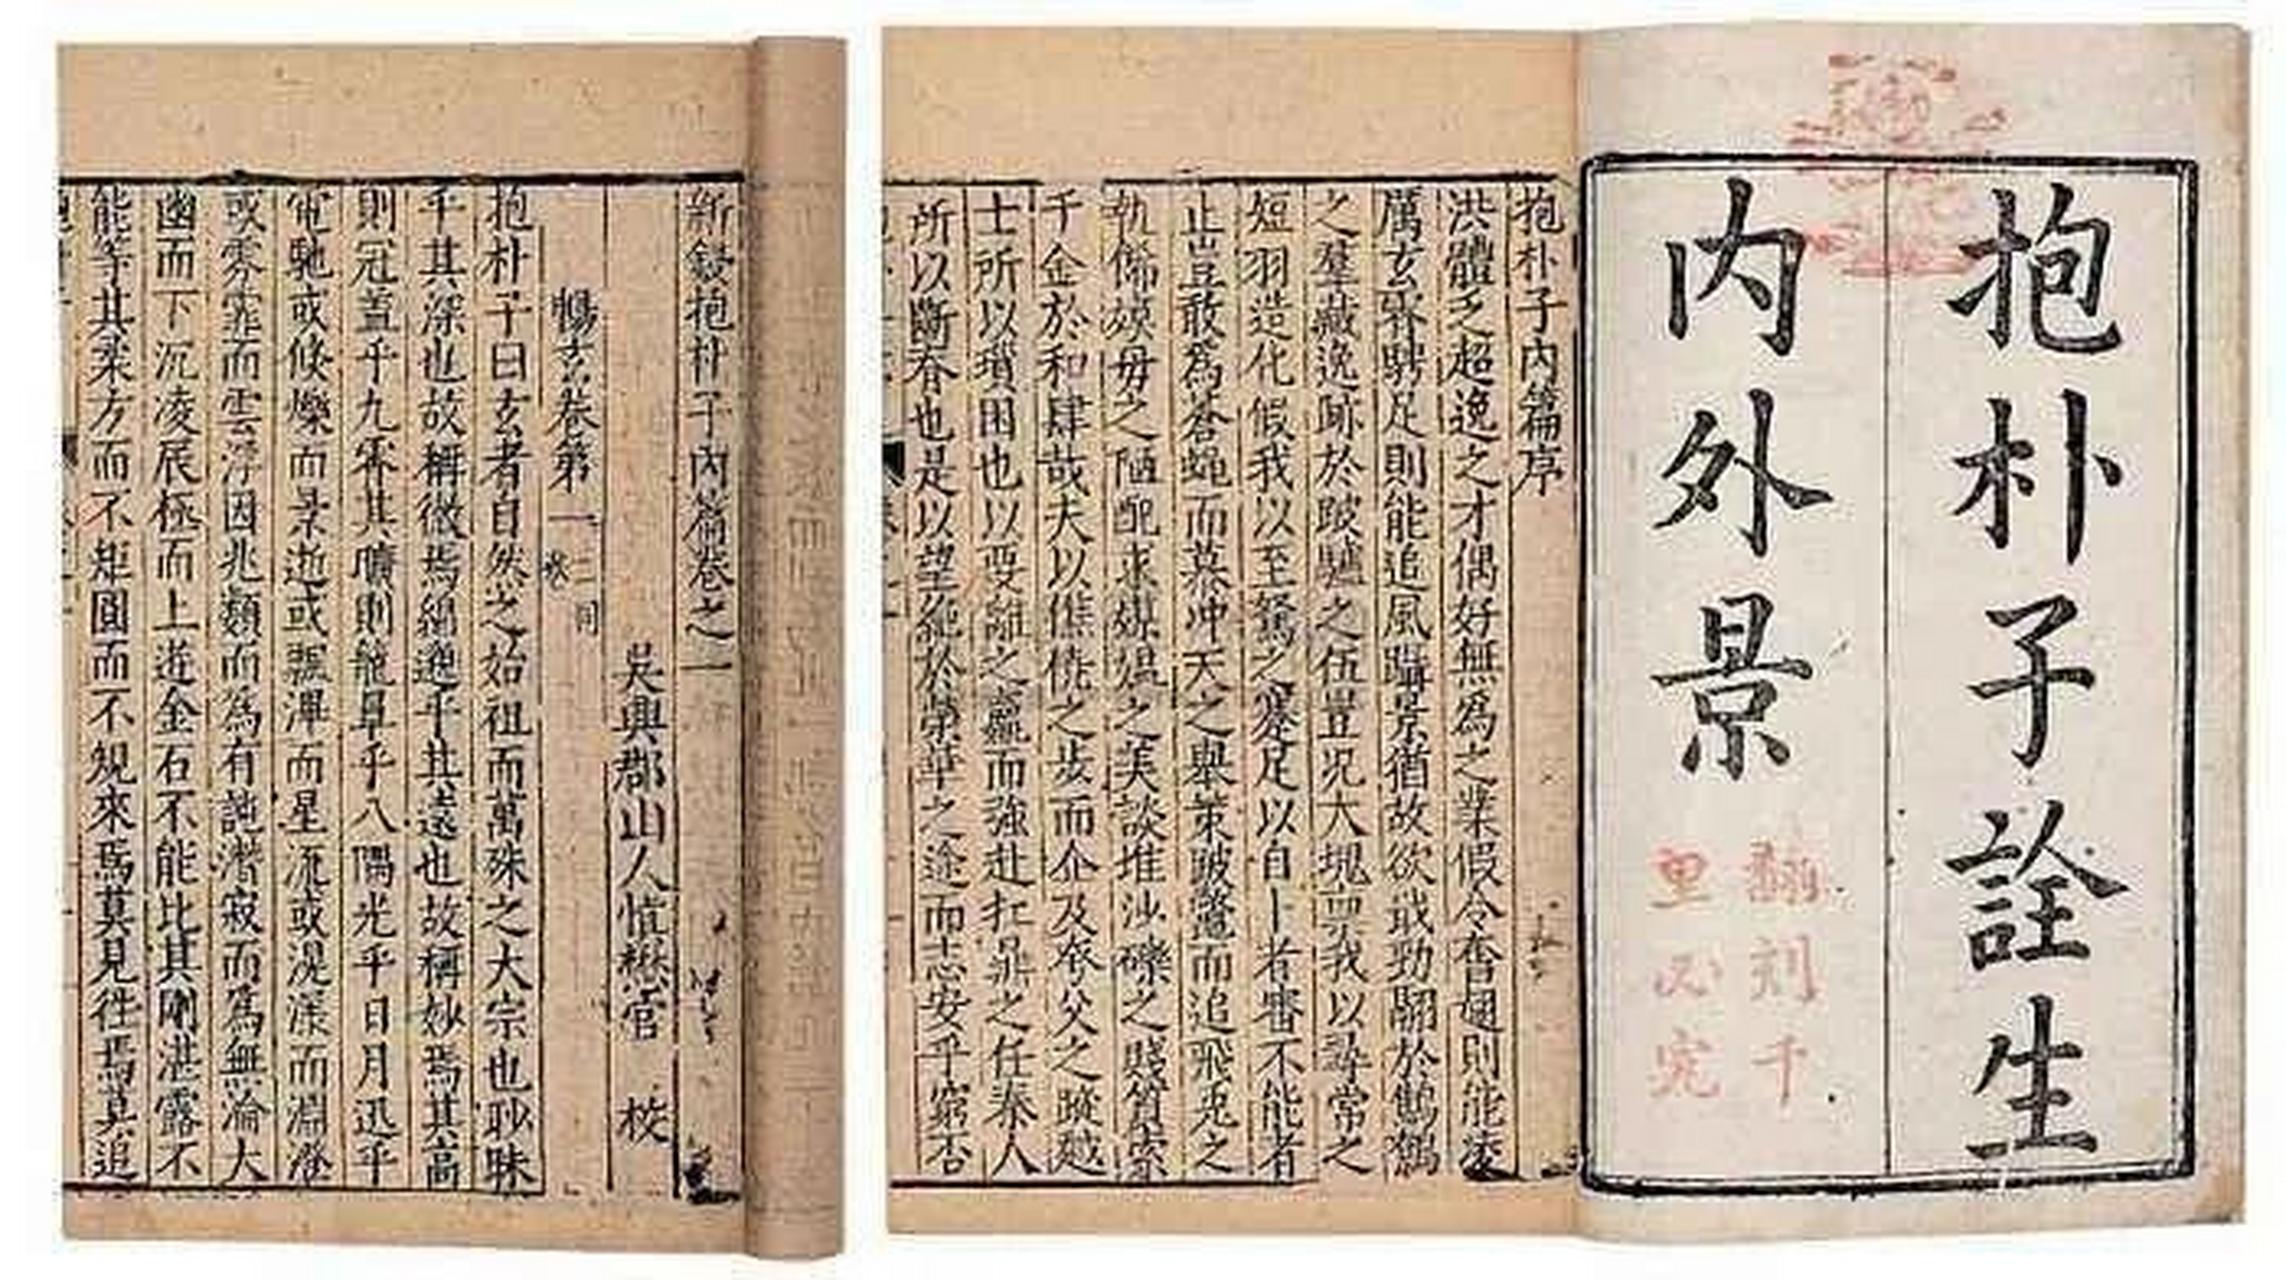 抱朴子詮生
內外景
翻刻千
里必究
抱朴子內篇序
洪體乏超逸之才偶好無為之業假令奮翅則能凌
厲玄霄騁足則能追風躡景猶故欲戢勁翮於鷦鷃
之羣藏逸跡於跛驢之伍豈況大塊稟我以尋常之
短羽造化假我以至駑之蹇足以自卜者審不能者
止豈敢為蒼蠅而慕沖天之舉策跛鼈而追飛兎之
軌飾嫫母之陋醜求媒媒之美談堆沙礫之賤質索
千金於和肆哉夫以僬僥之步而企及夸父之蹤
士所以躓困也以要離之羸而強赴扛鼎之任秦人
所以斷脊也是以望絕於榮華之途而志安乎窮否
新鋟抱朴子內篇卷之一
吳興郡山人慎懋官 校
暢玄卷第一
抱朴子曰玄者自然之始祖而萬殊之大宗也眇昧
乎其深也故稱微焉綿邈乎其遠也故稱妙焉其高
則冠蓋乎九霄其曠則籠罩乎八隅光乎日月迅乎
電馳或倏爍而景逝或飄滭而星流或滉漾而淵澄
或雰霏而雲浮因兆類而為有託潛寂而為無淪大
幽而下沉凌辰極而上遊金石不能比其剛湛露不
能等其柔方而不矩圓而不規來焉莫見往焉莫追